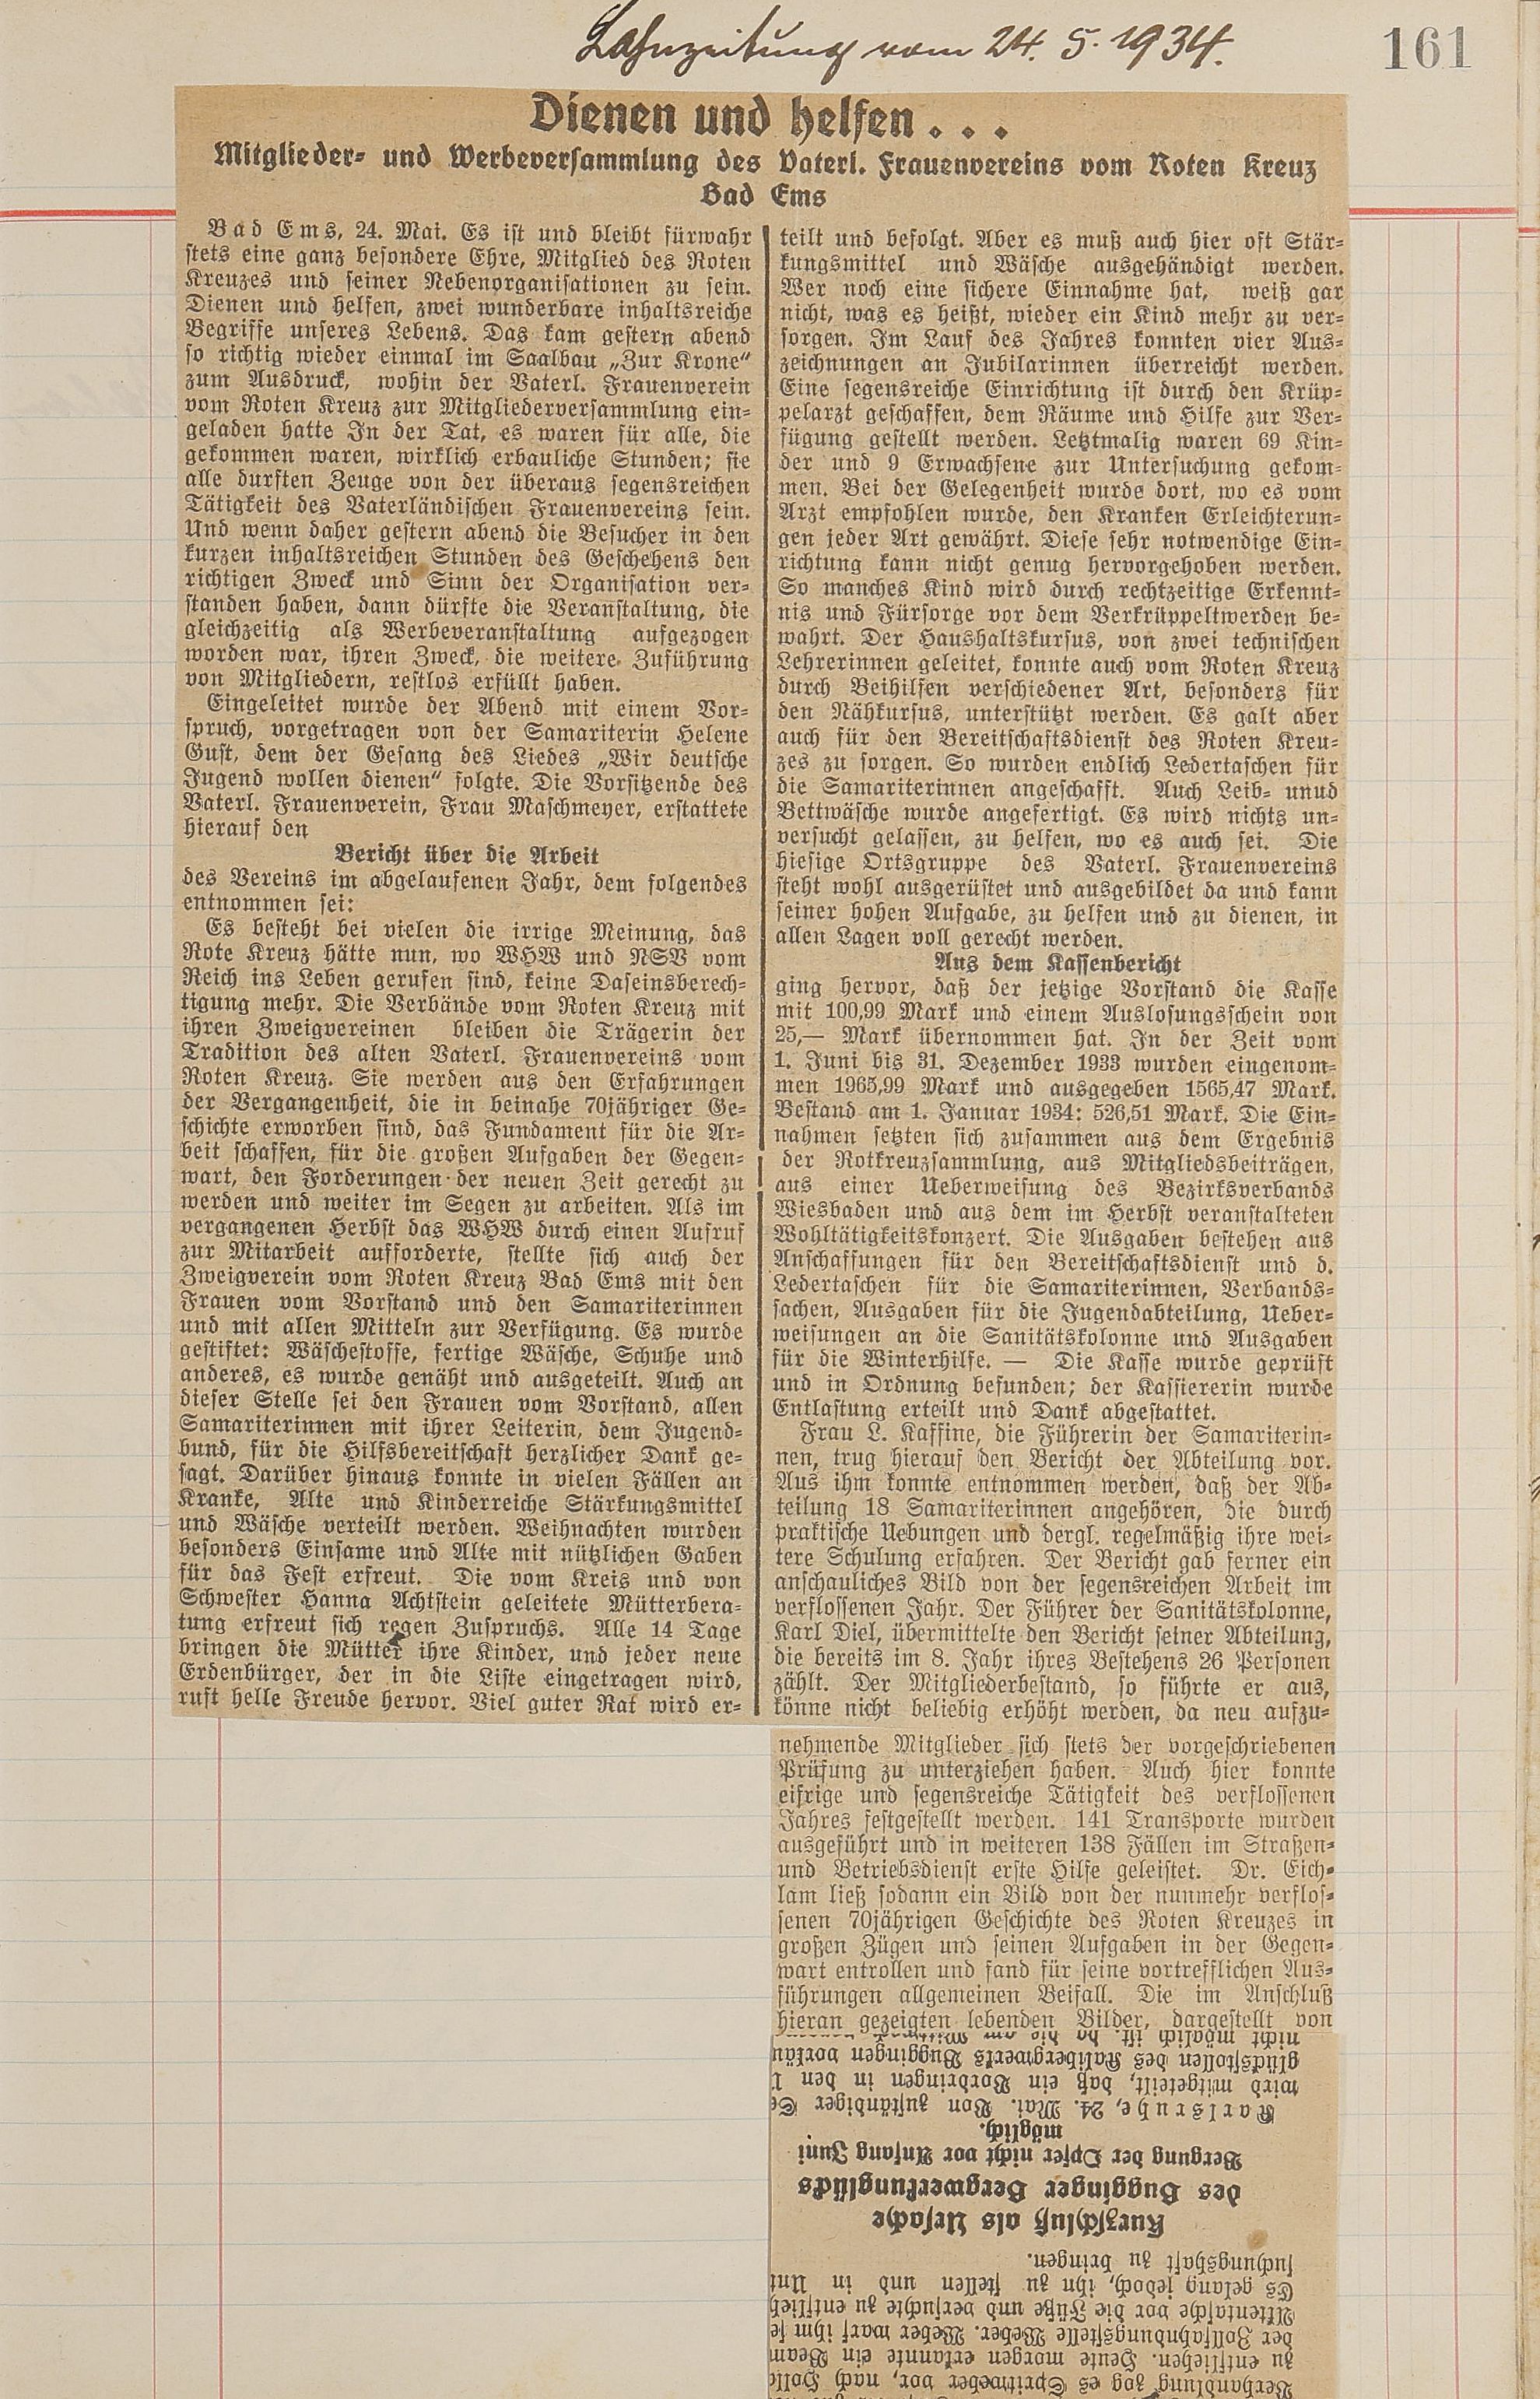 Lahnzeitung vom 24. 5. 1934.
161
Dienen und helfen . . .
Mitglieder- und Werbeversammlung des Vaterl. Frauenvereins vom Roten Kreuz
Bad Ems
Bad Ems, 24. Mai. Es ist und bleibt fürwahr
stets eine ganz besondere Ehre, Mitglied des Roten
Kreuzes und seiner Nebenorganisationen zu sein.
Dienen und helfen, zwei wunderbare inhaltsreiche
Begriffe unseres Lebens. Das kam gestern abend
so richtig wieder einmal im Saalbau „Zur Krone“
zum Ausdruck, wohin der Vaterl. Frauenverein
vom Roten Kreuz zur Mitgliederversammlung ein-
geladen hatte In der Tat, es waren für alle, die
gekommen waren, wirklich erbauliche Stunden; sie
alle durften Zeuge von der überaus segensreichen
Tätigkeit des Vaterländischen Frauenvereins sein.
Und wenn daher gestern abend die Besucher in den
kurzen inhaltsreichen Stunden des Geschehens den
richtigen Zweck und Sinn der Organisation ver-
standen haben, dann dürfte die Veranstaltung, die
gleichzeitig als Werbeveranstaltung aufgezogen
worden war, ihren Zweck, die weitere Zuführung
von Mitgliedern, restlos erfüllt haben.
Eingeleitet wurde der Abend mit einem Vor-
spruch, vorgetragen von der Samariterin Helene
Gust, dem der Gesang des Liedes „Wir deutsche
Jugend wollen dienen“ folgte. Die Vorsitzende des
Vaterl. Frauenverein, Frau Maschmeyer, erstattete
hierauf den
Bericht über die Arbeit
des Vereins im abgelaufenen Jahr, dem folgendes
entnommen sei:
Es besteht bei vielen die irrige Meinung, das
Rote Kreuz hätte nun, wo WHW und NSV vom
Reich ins Leben gerufen sind, keine Daseinsberech-
tigung mehr. Die Verbände vom Roten Kreuz mit
ihren Zweigvereinen bleiben die Trägerin der
Tradition des alten Vaterl. Frauenvereins vom
Roten Kreuz. Sie werden aus den Erfahrungen
der Vergangenheit, die in beinahe 70jähriger Ge-
schichte erworben sind, das Fundament für die Ar-
beit schaffen, für die großen Aufgaben der Gegen-
wart, den Forderungen der neuen Zeit gerecht zu
werden und weiter im Segen zu arbeiten. Als im
vergangenen Herbst das WHW durch einen Aufruf
zur Mitarbeit aufforderte, stellte sich auch der
Zweigverein vom Roten Kreuz Bad Ems mit den
Frauen vom Vorstand und den Samariterinnen
und mit allen Mitteln zur Verfügung. Es wurde
gestiftet: Wäschestoffe, fertige Wäsche, Schuhe und
anderes, es wurde genäht und ausgeteilt. Auch an
dieser Stelle sei den Frauen vom Vorstand, allen
Samariterinnen mit ihrer Leiterin, dem Jugend-
bund, für die Hilfsbereitschaft herzlicher Dank ge-
sagt. Darüber hinaus konnte in vielen Fällen an
Kranke, Alte und Kinderreiche Stärkungsmittel
und Wäsche verteilt werden. Weihnachten wurden
besonders Einsame und Alte mit nützlichen Gaben
für das Fest erfreut. Die vom Kreis und von
Schwester Hanna Achtstein geleitete Mütterbera-
tung erfreut sich regen Zuspruchs. Alle 14 Tage
bringen die Mütter ihre Kinder, und jeder neue
Erdenbürger, der in die Liste eingetragen wird,
ruft helle Freude hervor. Viel guter Rat wird er-
teilt und befolgt. Aber es muß auch hier oft Stär-
kungsmittel und Wäsche ausgehändigt werden.
Wer noch eine sichere Einnahme hat, weiß gar
nicht, was es heißt, wieder ein Kind mehr zu ver-
sorgen. Im Lauf des Jahres konnten vier Aus-
zeichnungen an Jubilarinnen überreicht werden.
Eine segensreiche Einrichtung ist durch den Krüp-
pelarzt geschaffen, dem Räume und Hilfe zur Ver-
fügung gestellt werden. Letztmalig waren 69 Kin-
der und 9 Erwachsene zur Untersuchung gekom-
men. Bei der Gelegenheit wurde dort, wo es vom
Arzt empfohlen wurde, den Kranken Erleichterun-
gen jeder Art gewährt. Diese sehr notwendige Ein-
richtung kann nicht genug hervorgehoben werden.
So manches Kind wird durch rechtzeitige Erkennt-
nis und Fürsorge vor dem Verkrüppeltwerden be-
wahrt. Der Haushaltskursus, von zwei technischen
Lehrerinnen geleitet, konnte auch vom Roten Kreuz
durch Beihilfen verschiedener Art, besonders für
den Nähkursus, unterstützt werden. Es galt aber
auch für den Bereitschaftsdienst des Roten Kreu-
zes zu sorgen. So wurden endlich Ledertaschen für
die Samariterinnen angeschafft. Auch Leib- unud
Bettwäsche wurde angefertigt. Es wird nichts un-
versucht gelassen, zu helfen, wo es auch sei. Die
hiesige Ortsgruppe des Vaterl. Frauenvereins
steht wohl ausgerüstet und ausgebildet da und kann
seiner hohen Aufgabe, zu helfen und zu dienen, in
allen Lagen voll gerecht werden.
Aus dem Kassenbericht
ging hervor, daß der jetzige Vorstand die Kasse
mit 100,99 Mark und einem Auslosungsschein von
25,— Mark übernommen hat. In der Zeit vom
1. Juni bis 31. Dezember 1933 wurden eingenom-
men 1965,99 Mark und ausgegeben 1565,47 Mark.
Bestand am 1. Januar 1934: 526,51 Mark. Die Ein-
nahmen setzten sich zusammen aus dem Ergebnis
der Rotkreuzsammlung, aus Mitgliedsbeiträgen,
aus einer Ueberweisung des Bezirksverbands
Wiesbaden und aus dem im Herbst veranstalteten
Wohltätigkeitskonzert. Die Ausgaben bestehen aus
Anschaffungen für den Bereitschaftsdienst und d.
Ledertaschen für die Samariterinnen, Verbands-
sachen, Ausgaben für die Jugendabteilung, Ueber-
weisungen an die Sanitätskolonne und Ausgaben
für die Winterhilfe. — Die Kasse wurde geprüft
und in Ordnung befunden; der Kassiererin wurde
Entlastung erteilt und Dank abgestattet.
Frau L. Kaffine, die Führerin der Samariterin-
nen, trug hierauf den Bericht der Abteilung vor.
Aus ihm konnte entnommen werden, daß der Ab-
teilung 18 Samariterinnen angehören, die durch
praktische Uebungen und dergl. regelmäßig ihre wei-
tere Schulung erfahren. Der Bericht gab ferner ein
anschauliches Bild von der segensreichen Arbeit im
verflossenen Jahr. Der Führer der Sanitätskolonne,
Karl Diel, übermittelte den Bericht seiner Abteilung,
die bereits im 8. Jahr ihres Bestehens 26 Personen
zählt. Der Mitgliederbestand, so führte er aus,
könne nicht beliebig erhöht werden, da neu aufzu-
nehmende Mitglieder sich stets der vorgeschriebenen
Prüfung zu unterziehen haben. Auch hier konnte
eifrige und segensreiche Tätigkeit des verflossenen
Jahres festgestellt werden. 141 Transporte wurden
ausgeführt und in weiteren 138 Fällen im Straßen-
und Betriebsdienst erste Hilfe geleistet. Dr. Eich-
lam ließ sodann ein Bild von der nunmehr verflos-
senen 70jährigen Geschichte des Roten Kreuzes in
großen Zügen und seinen Aufgaben in der Gegen-
wart entrollen und fand für seine vortrefflichen Aus-
führungen allgemeinen Beifall. Die im Anschluß
hieran gezeigten lebenden Bilder, dargestellt von
Verhandlung zog es Spritweber vor, nach Holl
zu entfliehen. Heute morgen erkannte ein Beam
der Zollfahndungsstelle Weber. Weber warf ihm se
Aktentasche vor die Füße und versuchte zu entflieh
Es gelang jedoch, ihn zu stellen und in Unt
suchungshaft zu bringen.
Kurzschluß als Ursache
des Bugginger Bergwerkunglücks
Bergung der Opfer nicht vor Anfang Juni
möglich.
Karlsruhe, 24. Mai. Von zuständiger Se
wird mitgeteilt, daß ein Vordringen in den U
glücksstollen des Kalibergwerks Buggingen vorläu
nicht möglich ist, da die am